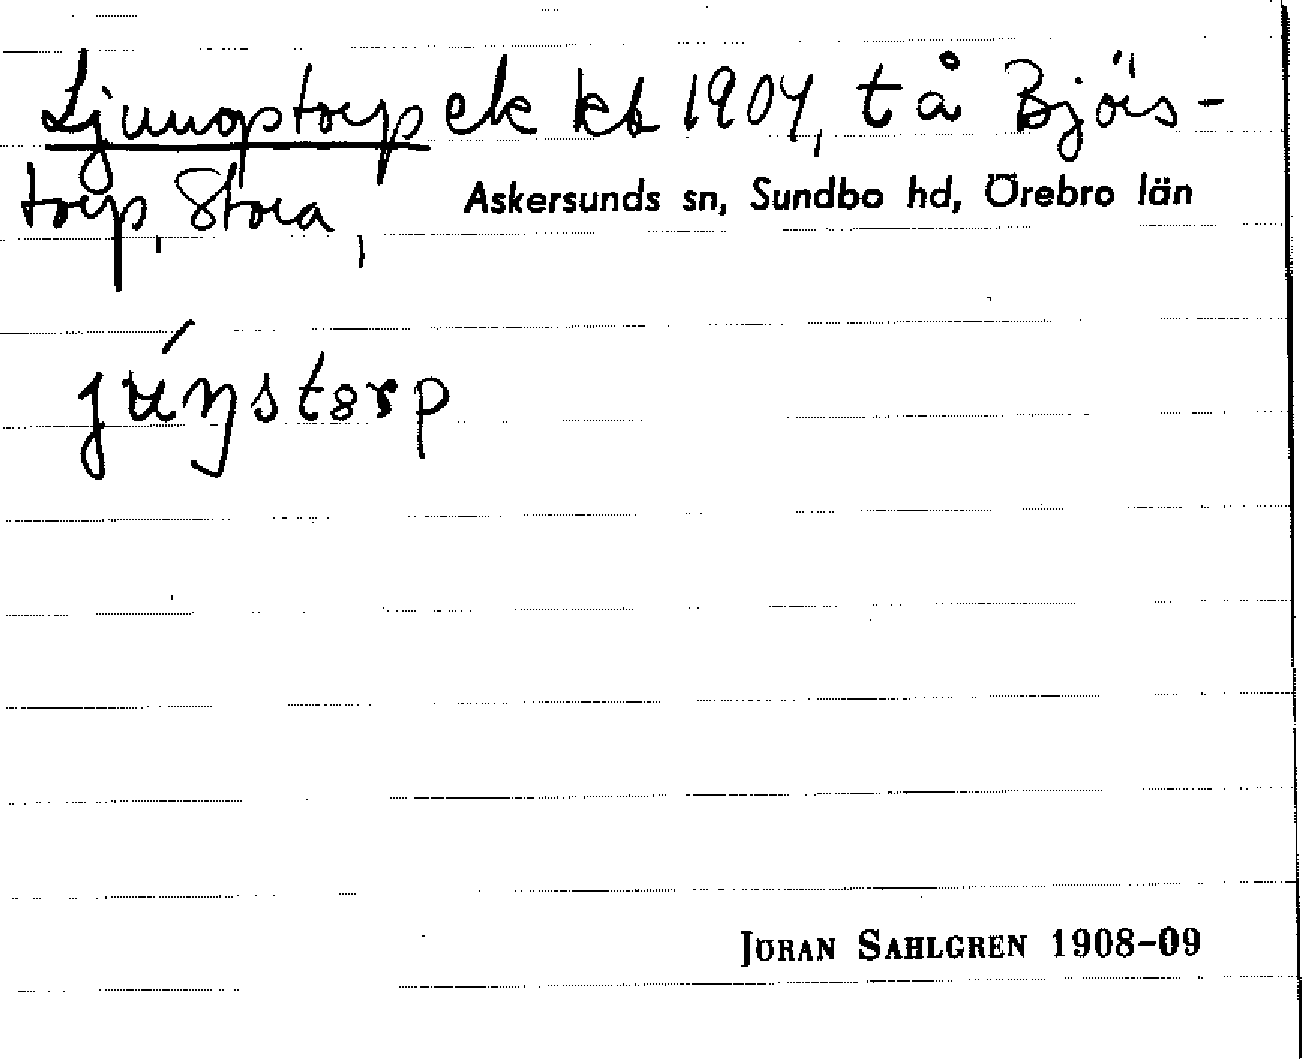 Ljungstorp ek kb 1904, t å Björs-
torp, Stora, Askersunds sn, Sundbo hd, Örebro län
jɯ́ŋstɔrp
JÖRAN SAHLGREN 1908-09